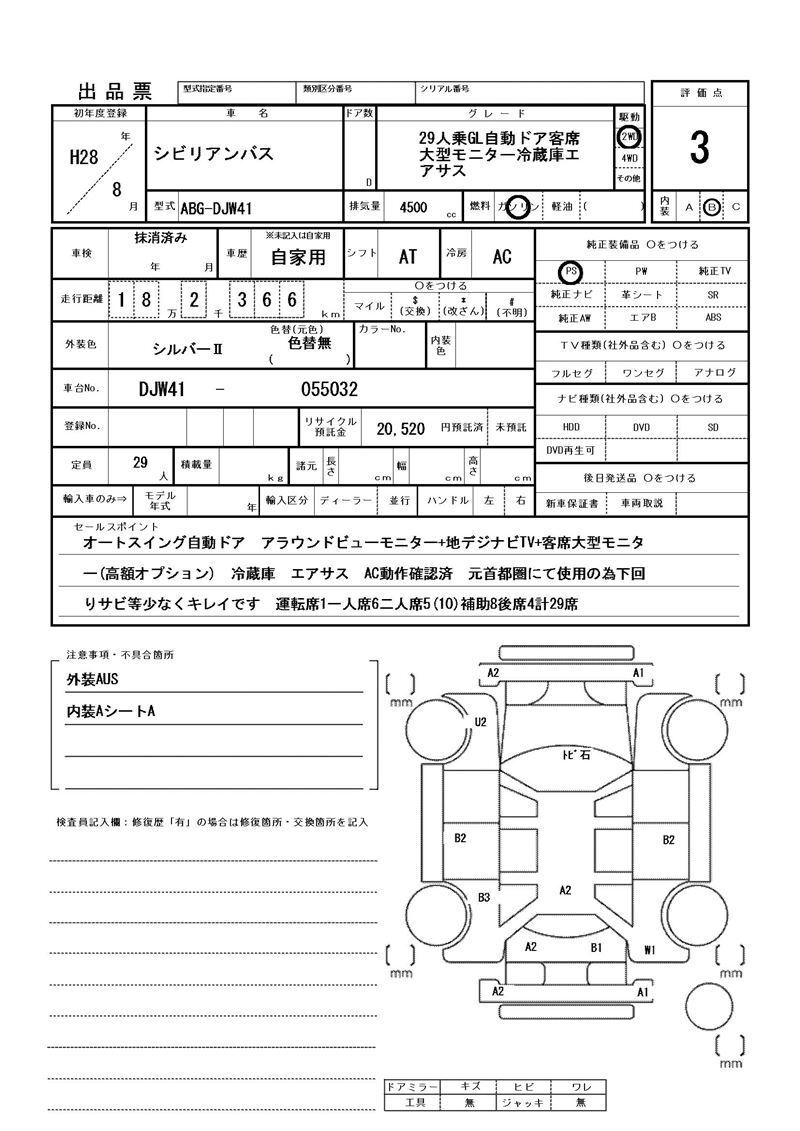 出品票 型式指定番号 類別区分番号 シリアル番号
評価点
3
内装 A B C
初年度登録 車名 ドア数 グレード 駆動
H28 年 8 月
シビリアンバス
D
29人乗GL自動ドア客席
大型モニター冷蔵庫エ
アサス
2WD
4WD
その他
型式 ABG-DJW41 排気量 4500 cc 燃料 ガソリン 軽油 ( )
車検 抹消済み 年 月 車歴 ※未記入は自家用 自家用 シフト AT 冷房 AC
走行距離 18万2千366km
〇をつける
マイル $(交換) *(改ざん) #(不明)
外装色 シルバーⅡ 色替(元色) 色替無 ( ) カラーNo. 内装色
車台No. DJW41 - 055032
登録No. リサイクル預託金 20,520 円預託済 未預託
定員 29人 積載量 kg 諸元 長さ cm 幅 cm 高さ cm
輸入車のみ⇒ モデル年式 年 輸入区分 ディーラー 並行 ハンドル 左 右
純正装備品 〇をつける
PS PW 純正TV
純正ナビ 革シート SR
純正AW エアB ABS
TV種類(社外品含む) 〇をつける
フルセグ ワンセグ アナログ
ナビ種類(社外品含む) 〇をつける
HDD DVD SD
DVD再生可
後日発送品 〇をつける
新車保証書 車両取説
セールスポイント
オートスイング自動ドア アラウンドビューモニター+地デジナビTV+客席大型モニタ
ー(高額オプション) 冷蔵庫 エアサス AC動作確認済 元首都圏にて使用の為下回
りサビ等少なくキレイです 運転席1一人席6二人席5(10)補助8後席4計29席
注意事項・不具合箇所
外装AUS
内装AシートA
検査員記入欄：修復歴「有」の場合は修復箇所・交換箇所を記入
A2 A1
[ ] mm [ ] mm
U2
ﾄﾋﾞ石
B2 B2
A2
B3
A2 B1 W1
[ ] mm [ ] mm
A2 A1
[ ] mm
ドアミラー キズ ヒビ ワレ
工具 無 ジャッキ 無